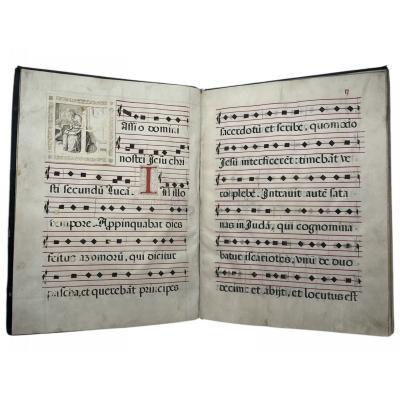 assio domini
nostri Jesu chri
sti secundũ Lucã. In illo
tempore. Appinquabat dies
festus azimorũ, qui dicitur
pascha, et querebãt principes
sacerdotũ et scribe, quomodo
Jesũ interficerẽt: timebãt ve
ro plebẽ. Intravit autẽ sata
nas in Judã, qui cognomina
batur iscariotes, unũ de duo
decim: et abijt, et locutus est